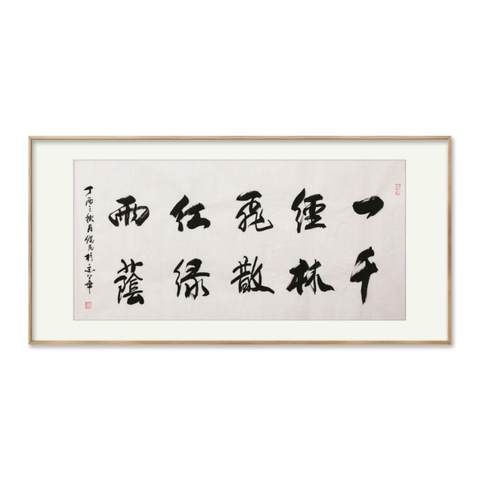 一經飛红雨
千林散绿蔭
丁酉之秋月